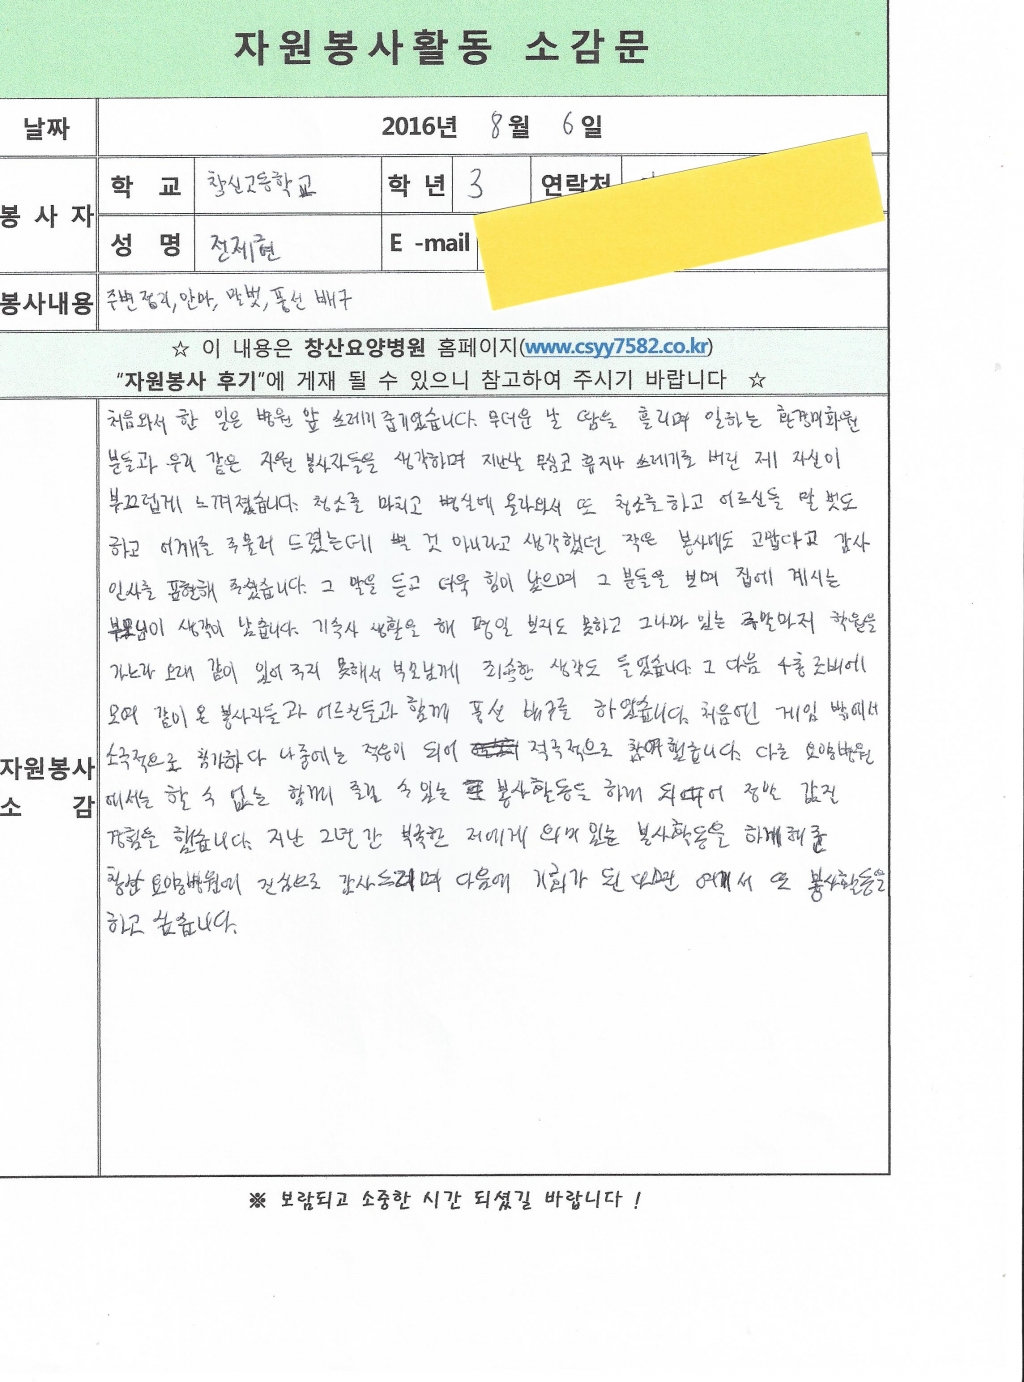 자원봉사활동 소감문
날짜 2016년 8월 6일
봉사자 학 교 창신고등학교 학년 3 연락처
성 명 전제현 E -mail
봉사내용 주변정리, 안마, 말벗, 풍선 배구
☆ 이 내용은 창산요양병원 홈페이지(www.csyy7582.co.kr)
“자원봉사 후기”에 게재 될 수 있으니 참고하여 주시기 바랍니다 ☆
자원봉사 소 감
처음와서 한 일은 병원 앞 쓰레기 줍기였습니다. 무더운 날 땀을 흘리며 일하는 환경미화원
분들과 우리 같은 자원 봉사자들을 생각하며 지난날 무심코 휴지나 쓰레기를 버린 제 자신이
부끄럽게 느껴졌습니다. 청소를 마치고 병실에 올라와서 또 청소를 하고 어르신들 말 벗도
하고 어깨를 주물러 드렸는데 별 것 아니라고 생각했던 작은 봉사에도 고맙다고 감사
인사를 표현해 주셨습니다. 그 말을 듣고 더욱 힘이 났으며 그 분들을 보며 집에 계시는
부모님이 생각이 났습니다. 기숙사 생활을 해 평일 보지도 못하고 그나마 있는 주말마저 학원을
가느라 오래 같이 있어 주지 못해서 부모님께 죄송한 생각도 들었습니다. 그 다음 4층 로비에
모여 같이 온 봉사자들과 어르신들과 함께 풍선 배구를 하였습니다. 처음엔 게임 밖에서
소극적으로 참가하다 나중에는 적응이 되어 적극적으로 참여했습니다. 다른 요양병원
에서는 할 수 없는 함께 즐길 수 있는 봉사활동을 하게 되어 정말 값진
경험을 했습니다. 지난 2년간 부족한 저에게 의미 있는 봉사활동을 하게 해준
창산 요양병원에 진심으로 감사드리며 다음에 기회가 된다면 여기서 또 봉사활동을
하고 싶습니다.
※ 보람되고 소중한 시간 되셨길 바랍니다 !